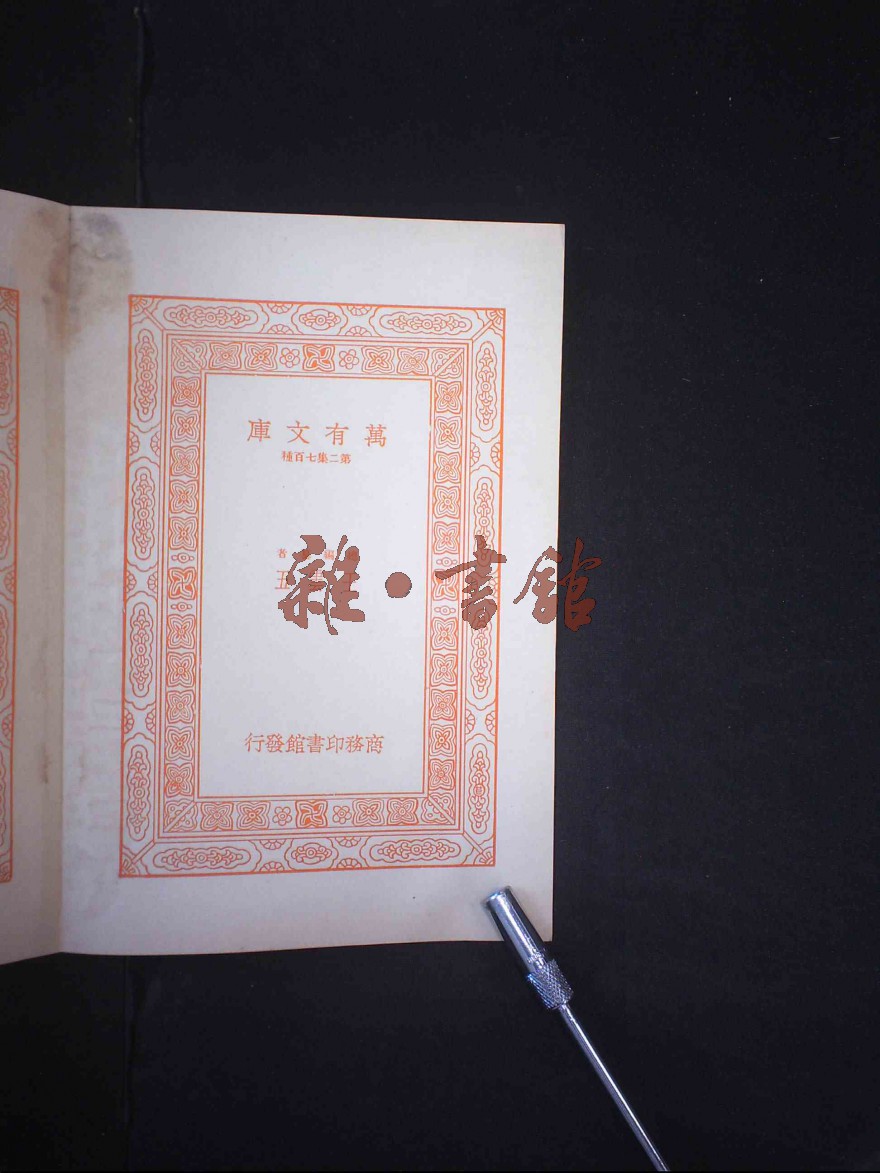 萬有文庫
第二集七百種
編 著
五
商務印書館發行
雜·書館